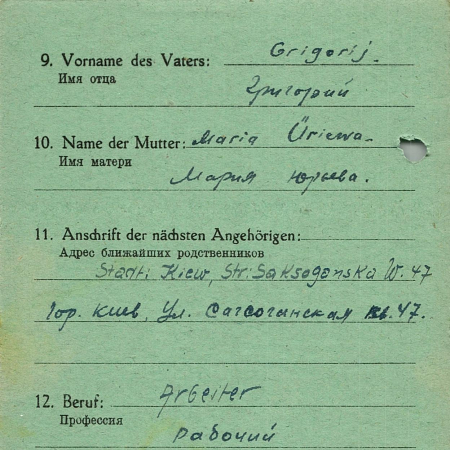 9. Vorname des Vaters: Grigorij.
Имя отца
Григорий
10. Name der Mutter: Maria Üriewa
Имя матери
Мария Юрьева.
11. Anschrift der nächsten Angehörigen:
Адрес ближайших родственников
Stadt: Kiew, Str: Saksaganska W. 47
Гор. Киев, Ул. Сагсоганская кв. 47.
12. Beruf: Arbeiter
Профессия
рабочий